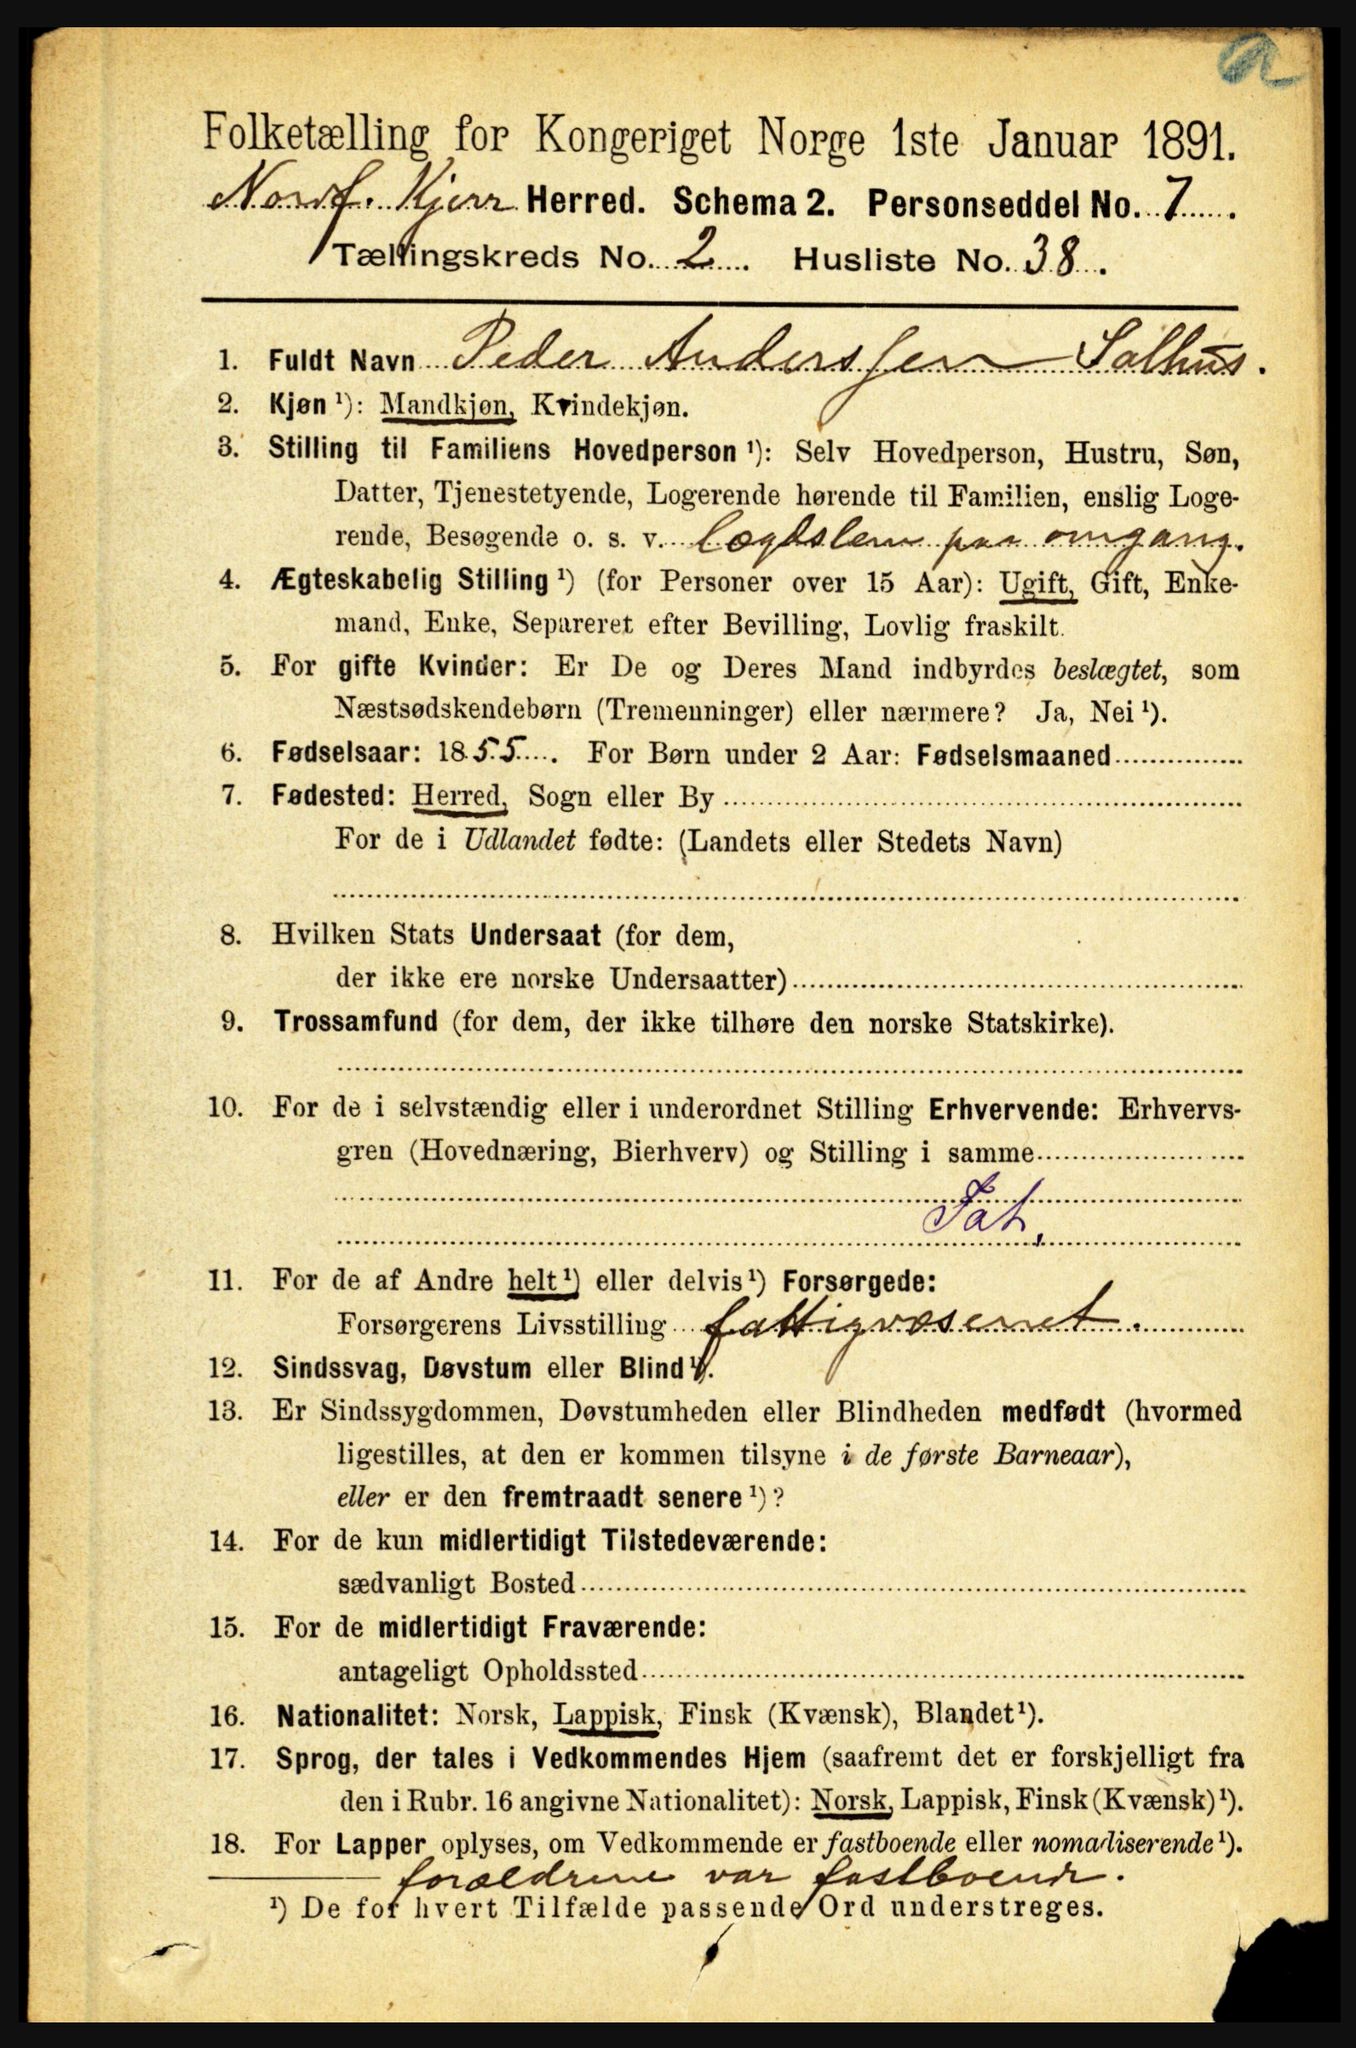 a
Folketælling for Kongeriget Norge 1ste Januar 1891.
Nordf. Kjerr Herred. Schema 2. Personseddel No. 7.
Tællingskreds No. 2. Husliste No. 38.
1. Fuldt Navn Peder Anderssen Salhus.
2. Kjøn ¹): Mandkjøn, Kvindekjøn.
3. Stilling til Familiens Hovedperson ¹): Selv Hovedperson, Hustru, Søn,
Datter, Tjenestetyende, Logerende hørende til Familien, enslig Loge-
rende, Besøgende o. s. v. Lægdslem paa omgang.
4. Ægteskabelig Stilling ¹) (for Personer over 15 Aar): Ugift, Gift, Enke-
mand, Enke, Separeret efter Bevilling, Lovlig fraskilt.
5. For gifte Kvinder: Er De og Deres Mand indbyrdes beslægtet, som
Næstsødskendebørn (Tremenninger) eller nærmere? Ja, Nei ¹).
6. Fødselsaar: 1855. For Børn under 2 Aar: Fødselsmaaned
7. Fødested: Herred, Sogn eller By
For de i Udlandet fødte: (Landets eller Stedets Navn)
8. Hvilken Stats Undersaat (for dem,
der ikke ere norske Undersaatter)
9. Trossamfund (for dem, der ikke tilhøre den norske Statskirke).
10. For de i selvstændig eller i underordnet Stilling Erhvervende: Erhvervs-
gren (Hovednæring, Bierhverv) og Stilling i samme
Fat,
11. For de af Andre helt ¹) eller delvis ¹) Forsørgede:
Forsørgerens Livsstilling fattigvæsenet.
12. Sindssvag, Døvstum eller Blind ¹).
13. Er Sindssygdommen, Døvstumheden eller Blindheden medfødt (hvormed
ligestilles, at den er kommen tilsyne i de første Barneaar),
eller er den fremtraadt senere ¹)?
14. For de kun midlertidigt Tilstedeværende:
sædvanligt Bosted
15. For de midlertidigt Fraværende:
antageligt Opholdssted
16. Nationalitet: Norsk, Lappisk, Finsk (Kvænsk), Blandet ¹).
17. Sprog, der tales i Vedkommendes Hjem (saafremt det er forskjelligt fra
den i Rubr. 16 angivne Nationalitet): Norsk, Lappisk, Finsk (Kvænsk) ¹).
18. For Lapper oplyses, om Vedkommende er fastboende eller nomadiserende ¹).
forældrene var fastboende.
¹) De for hvert Tilfælde passende Ord understreges.